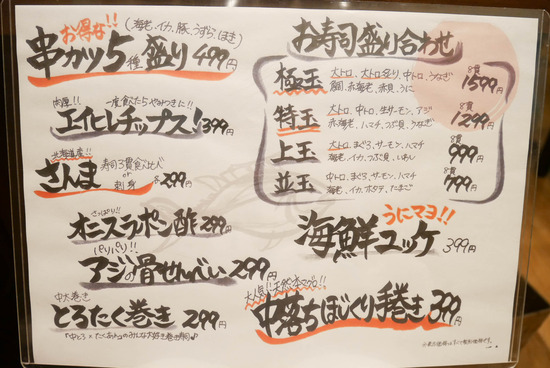 お得な!!
(海老、イカ、豚、うずら、ほき)
串カツ5種盛り499円
肉厚!! 一度食たらやみつきに!!
エイヒレチップス!399円
北海道産!!
さんま 寿司3貫食べ比べ or 刺身 各299円
さっぱり!!
オニスラポン酢299円
パリパリ!!
アジの骨せんべい299円
中太巻き
とろたく巻き299円
お寿司盛り合わせ
極玉 大トロ、大トロ炙り、中トロ、うなぎ 8貫
鯛、赤海老、赤貝、うに 1599円
特玉 大トロ、中トロ、生サーモン、アジ 8貫
赤海老、ハマチ、つぶ貝、うなぎ 1299円
上玉 大トロ、まぐろ、サーモン、ハマチ 8貫
海老、イカ、つぶ貝、 999円
並玉 中トロ、まぐろ、サーモン、ハマチ 8貫
海老、イカ、ホタテ、たまご 799円
うにマヨ!!
海鮮ユッケ 399円
大人気!!天然本マグロ!!
中落ちほじくり手巻き399円